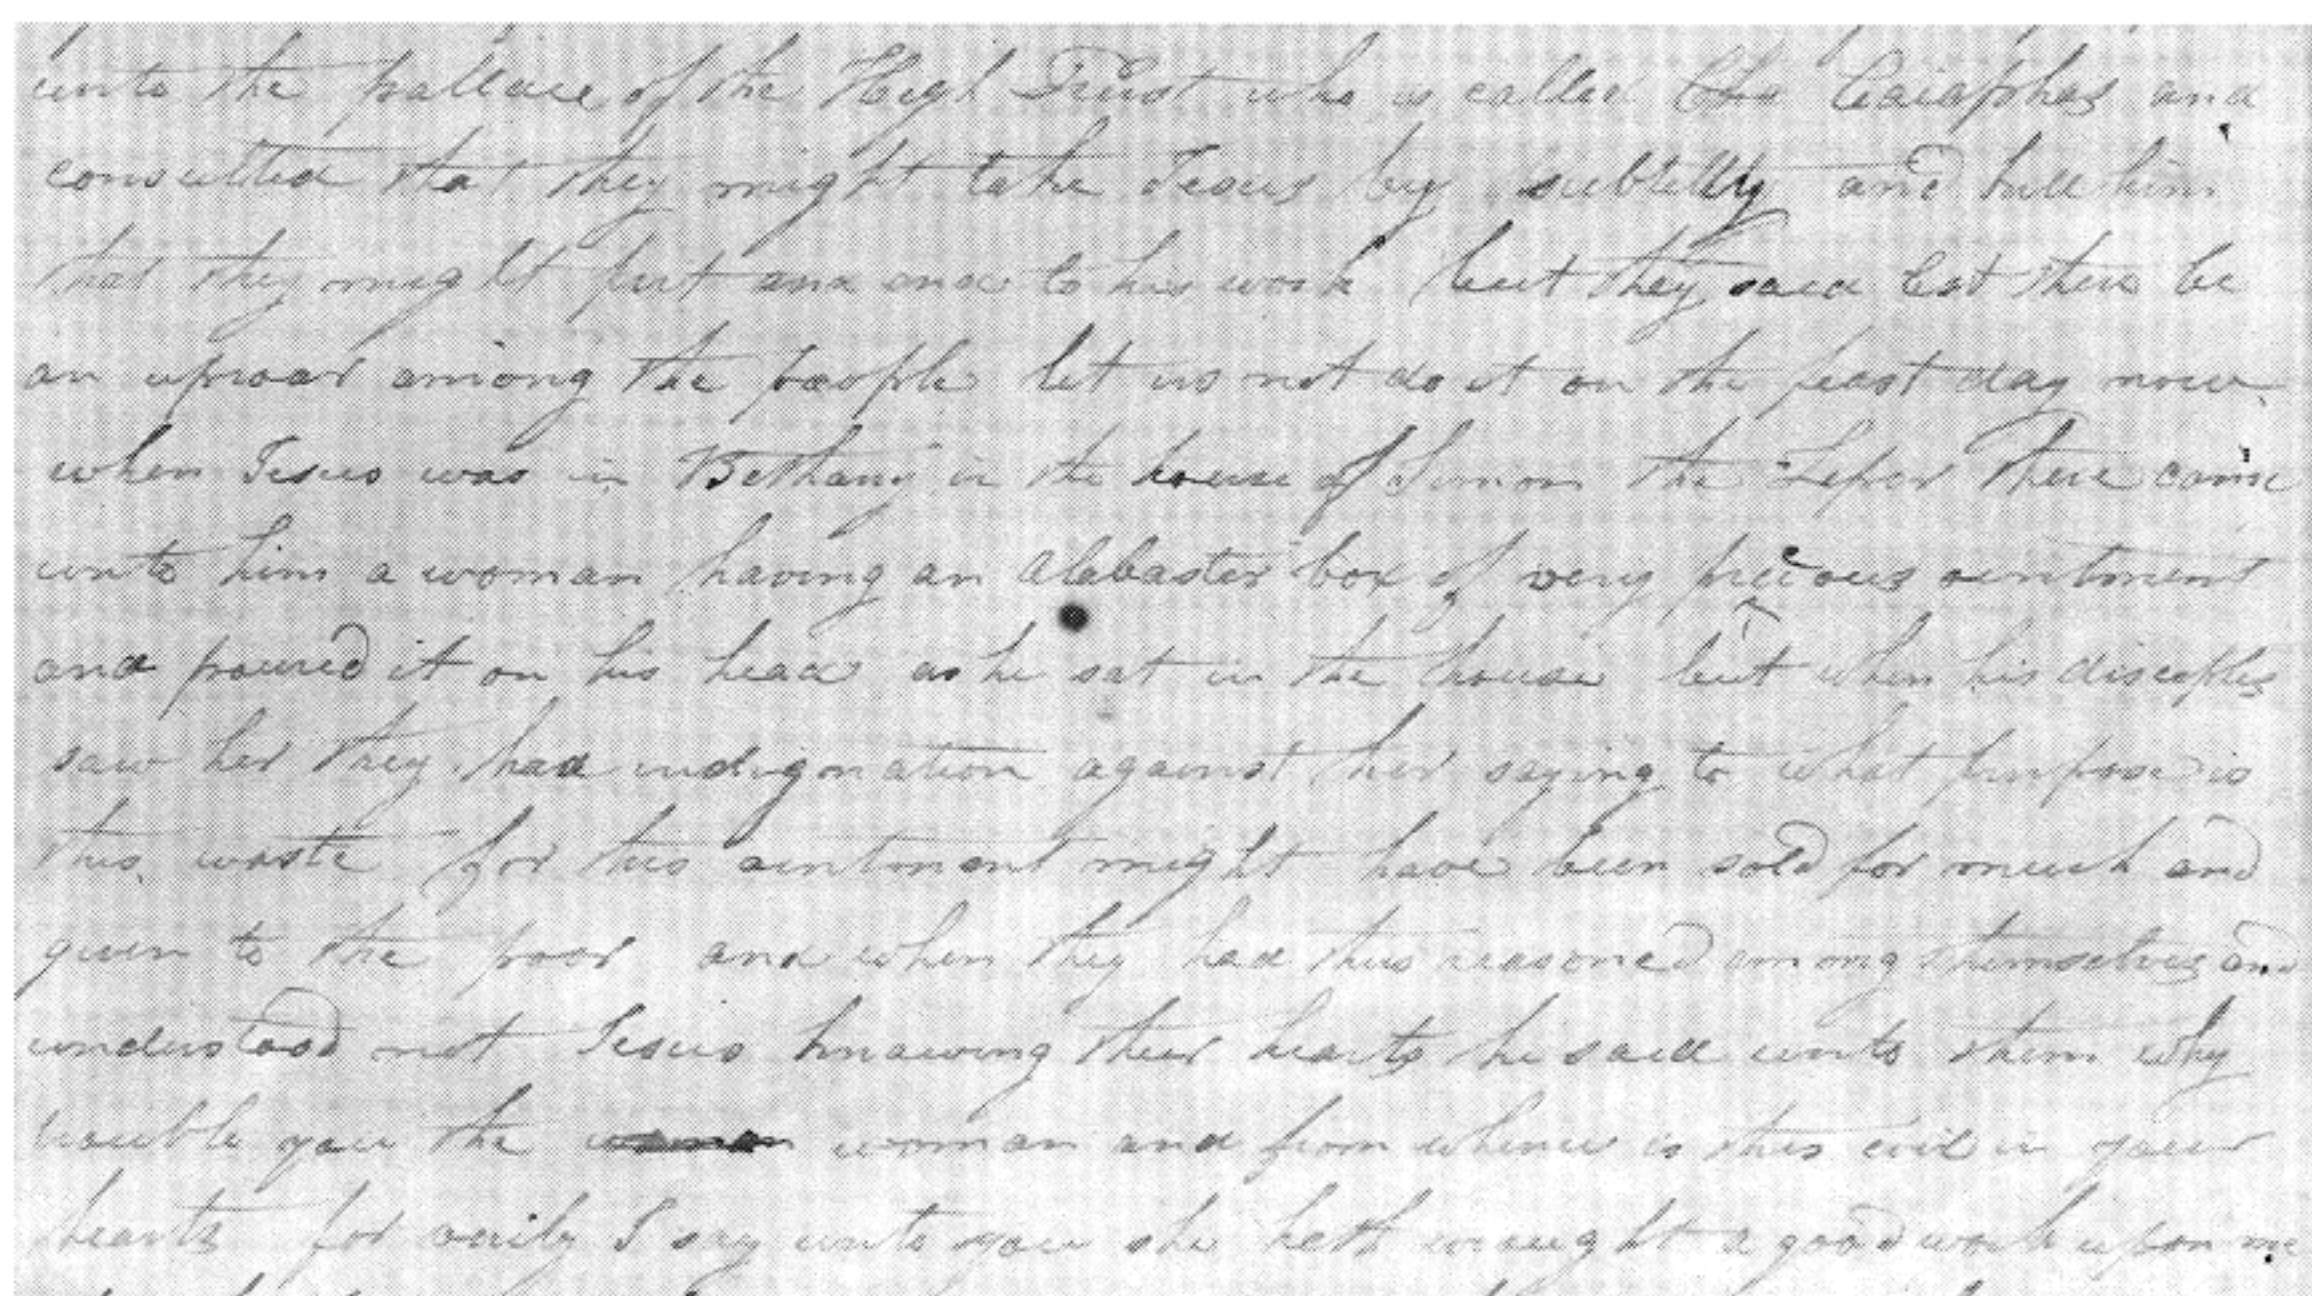 unto the pallace of the High Priest who is called Caiaphas and
consulted that they might take Jesus by subtelty and kill him
that they might put and end to his work but they said lest there be
an uproar among the people let us not do it on the feast day now
when Jesus was in Bethany in the house of Simon the Leper there came
unto him a woman having an alabaster box of very precous ointment
and poured it on his head as he sat in the house but when his disciples
saw her they had indignation against her saying to what purpose is
this waste for this ointment might have been sold for much and
given to the poor and when they had thus reasoned among themselves and
understood not Jesus knowing their hearts he said unto them why
trouble you the woman woman and from whence is this evil in your
hearts for verily I say unto you she hath wrought a good work upon me